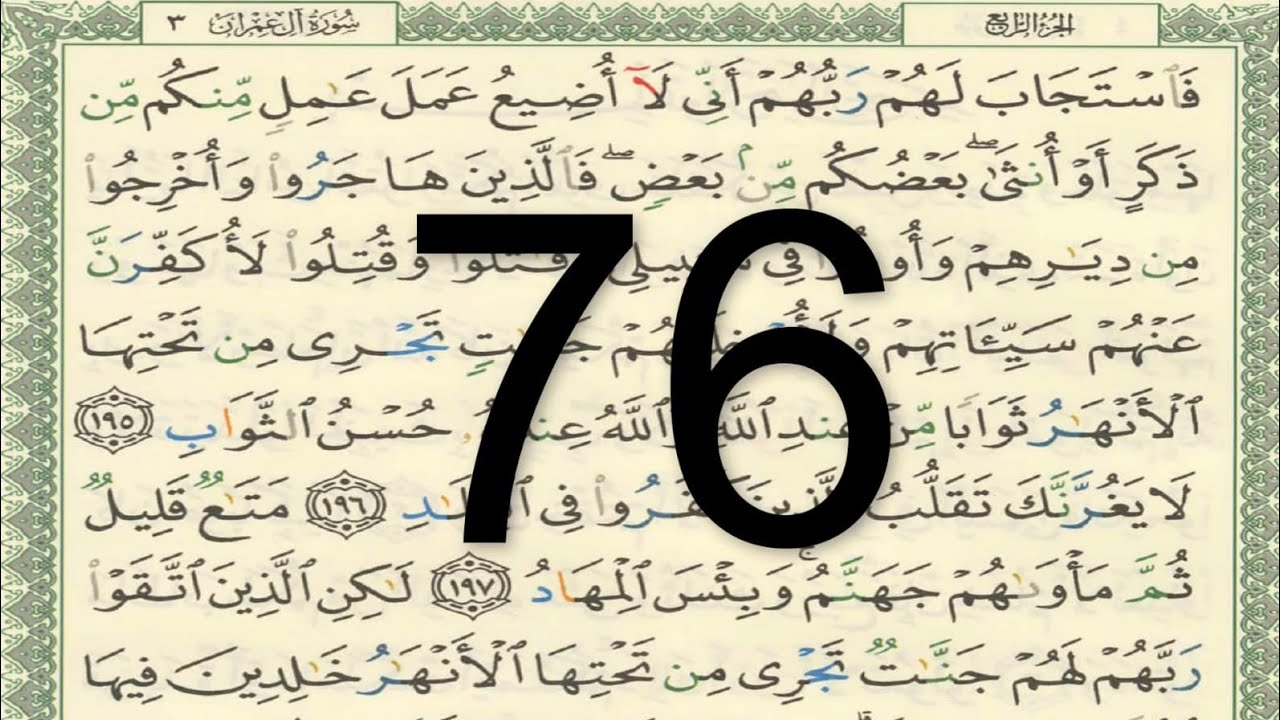 سُورَةُ آلِ عِمْرَانَ ٣
الجُزْءُ الرَّابِعُ
فَٱسْتَجَابَ لَهُمْ رَبُّهُمْ أَنِّى لَآ أُضِيعُ عَمَلَ عَٰمِلٍ مِّنكُم مِّن
ذَكَرٍ أَوْ أُنثَىٰ ۖ بَعْضُكُم مِّنۢ بَعْضٍ ۖ فَٱلَّذِينَ هَاجَرُوا۟ وَأُخْرِجُوا۟
مِن دِيَٰرِهِمْ فِى وَقُتِلُوا۟ لَأُكَفِّرَنَّ
عَنْهُمْ سَيِّـَٔاتِهِمْ تَجْرِى مِن تَحْتِهَا
ٱلْأَنْهَٰرُ ثَوَابًا حُسْنُ ٱلثَّوَابِ ١٩٥
لَا يَغُرَّنَّكَ تَقَلُّبُ فِى ١٩٦ مَتَٰعٌ قَلِيلٌ
ثُمَّ مَأْوَىٰهُمْ جَهَنَّمُ ۚ وَبِئْسَ ٱلْمِهَادُ ١٩٧ لَٰكِنِ ٱلَّذِينَ ٱتَّقَوْا۟
رَبَّهُمْ لَهُمْ جَنَّٰتٌ تَجْرِى مِن تَحْتِهَا ٱلْأَنْهَٰرُ خَٰلِدِينَ فِيهَا
76